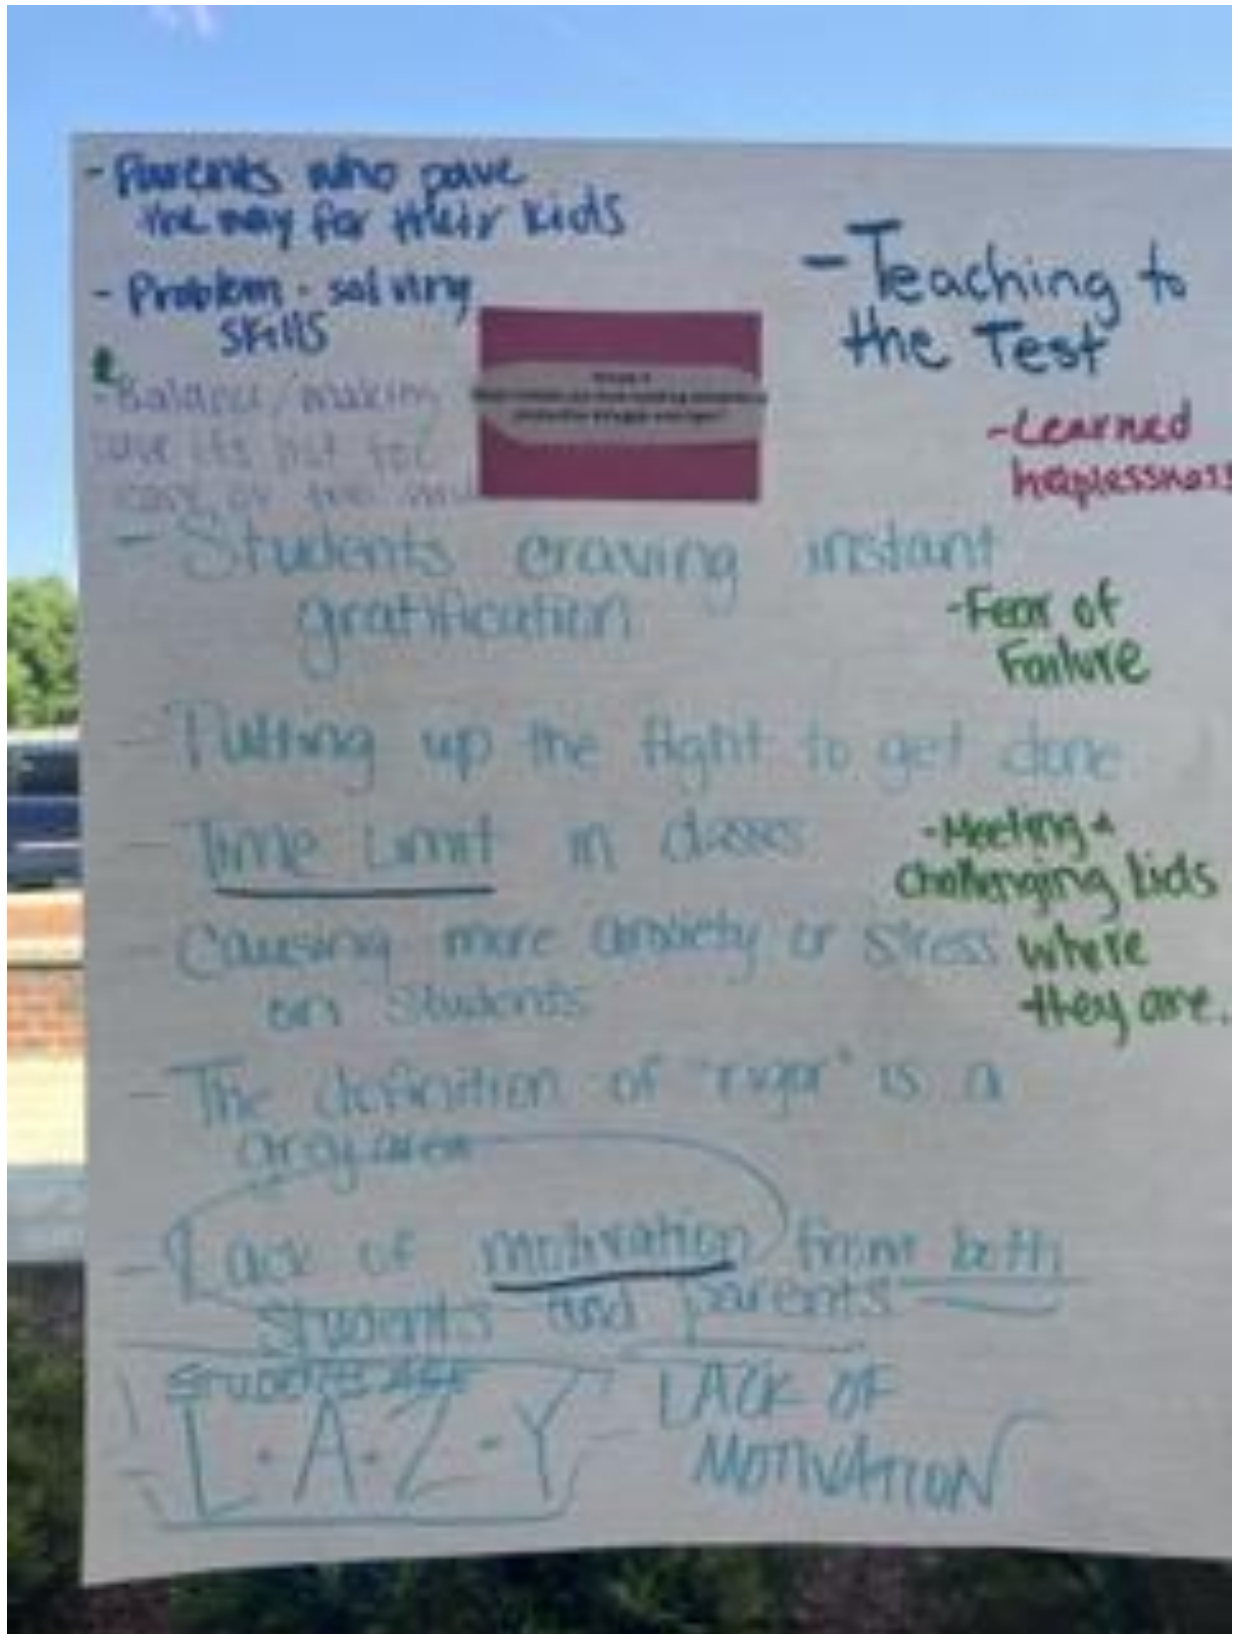 - Parents who pave
the way for their kids
- Problem-solving
skills
- Balance/making
sure its not too
easy or too
- Teaching to
the Test
- Learned
helplessness
- Students craving instant
gratification
- Fear of
Failure
- Putting up the fight to get done
- Time Limit in classes
- Meeting +
challenging kids
where
they are.
- Causing more anxiety or stress
on students
- The definition of "rigor" is a
gray area
- Lack of motivation from both
students and parents
L.A.Z.Y
LACK OF
MOTIVATION